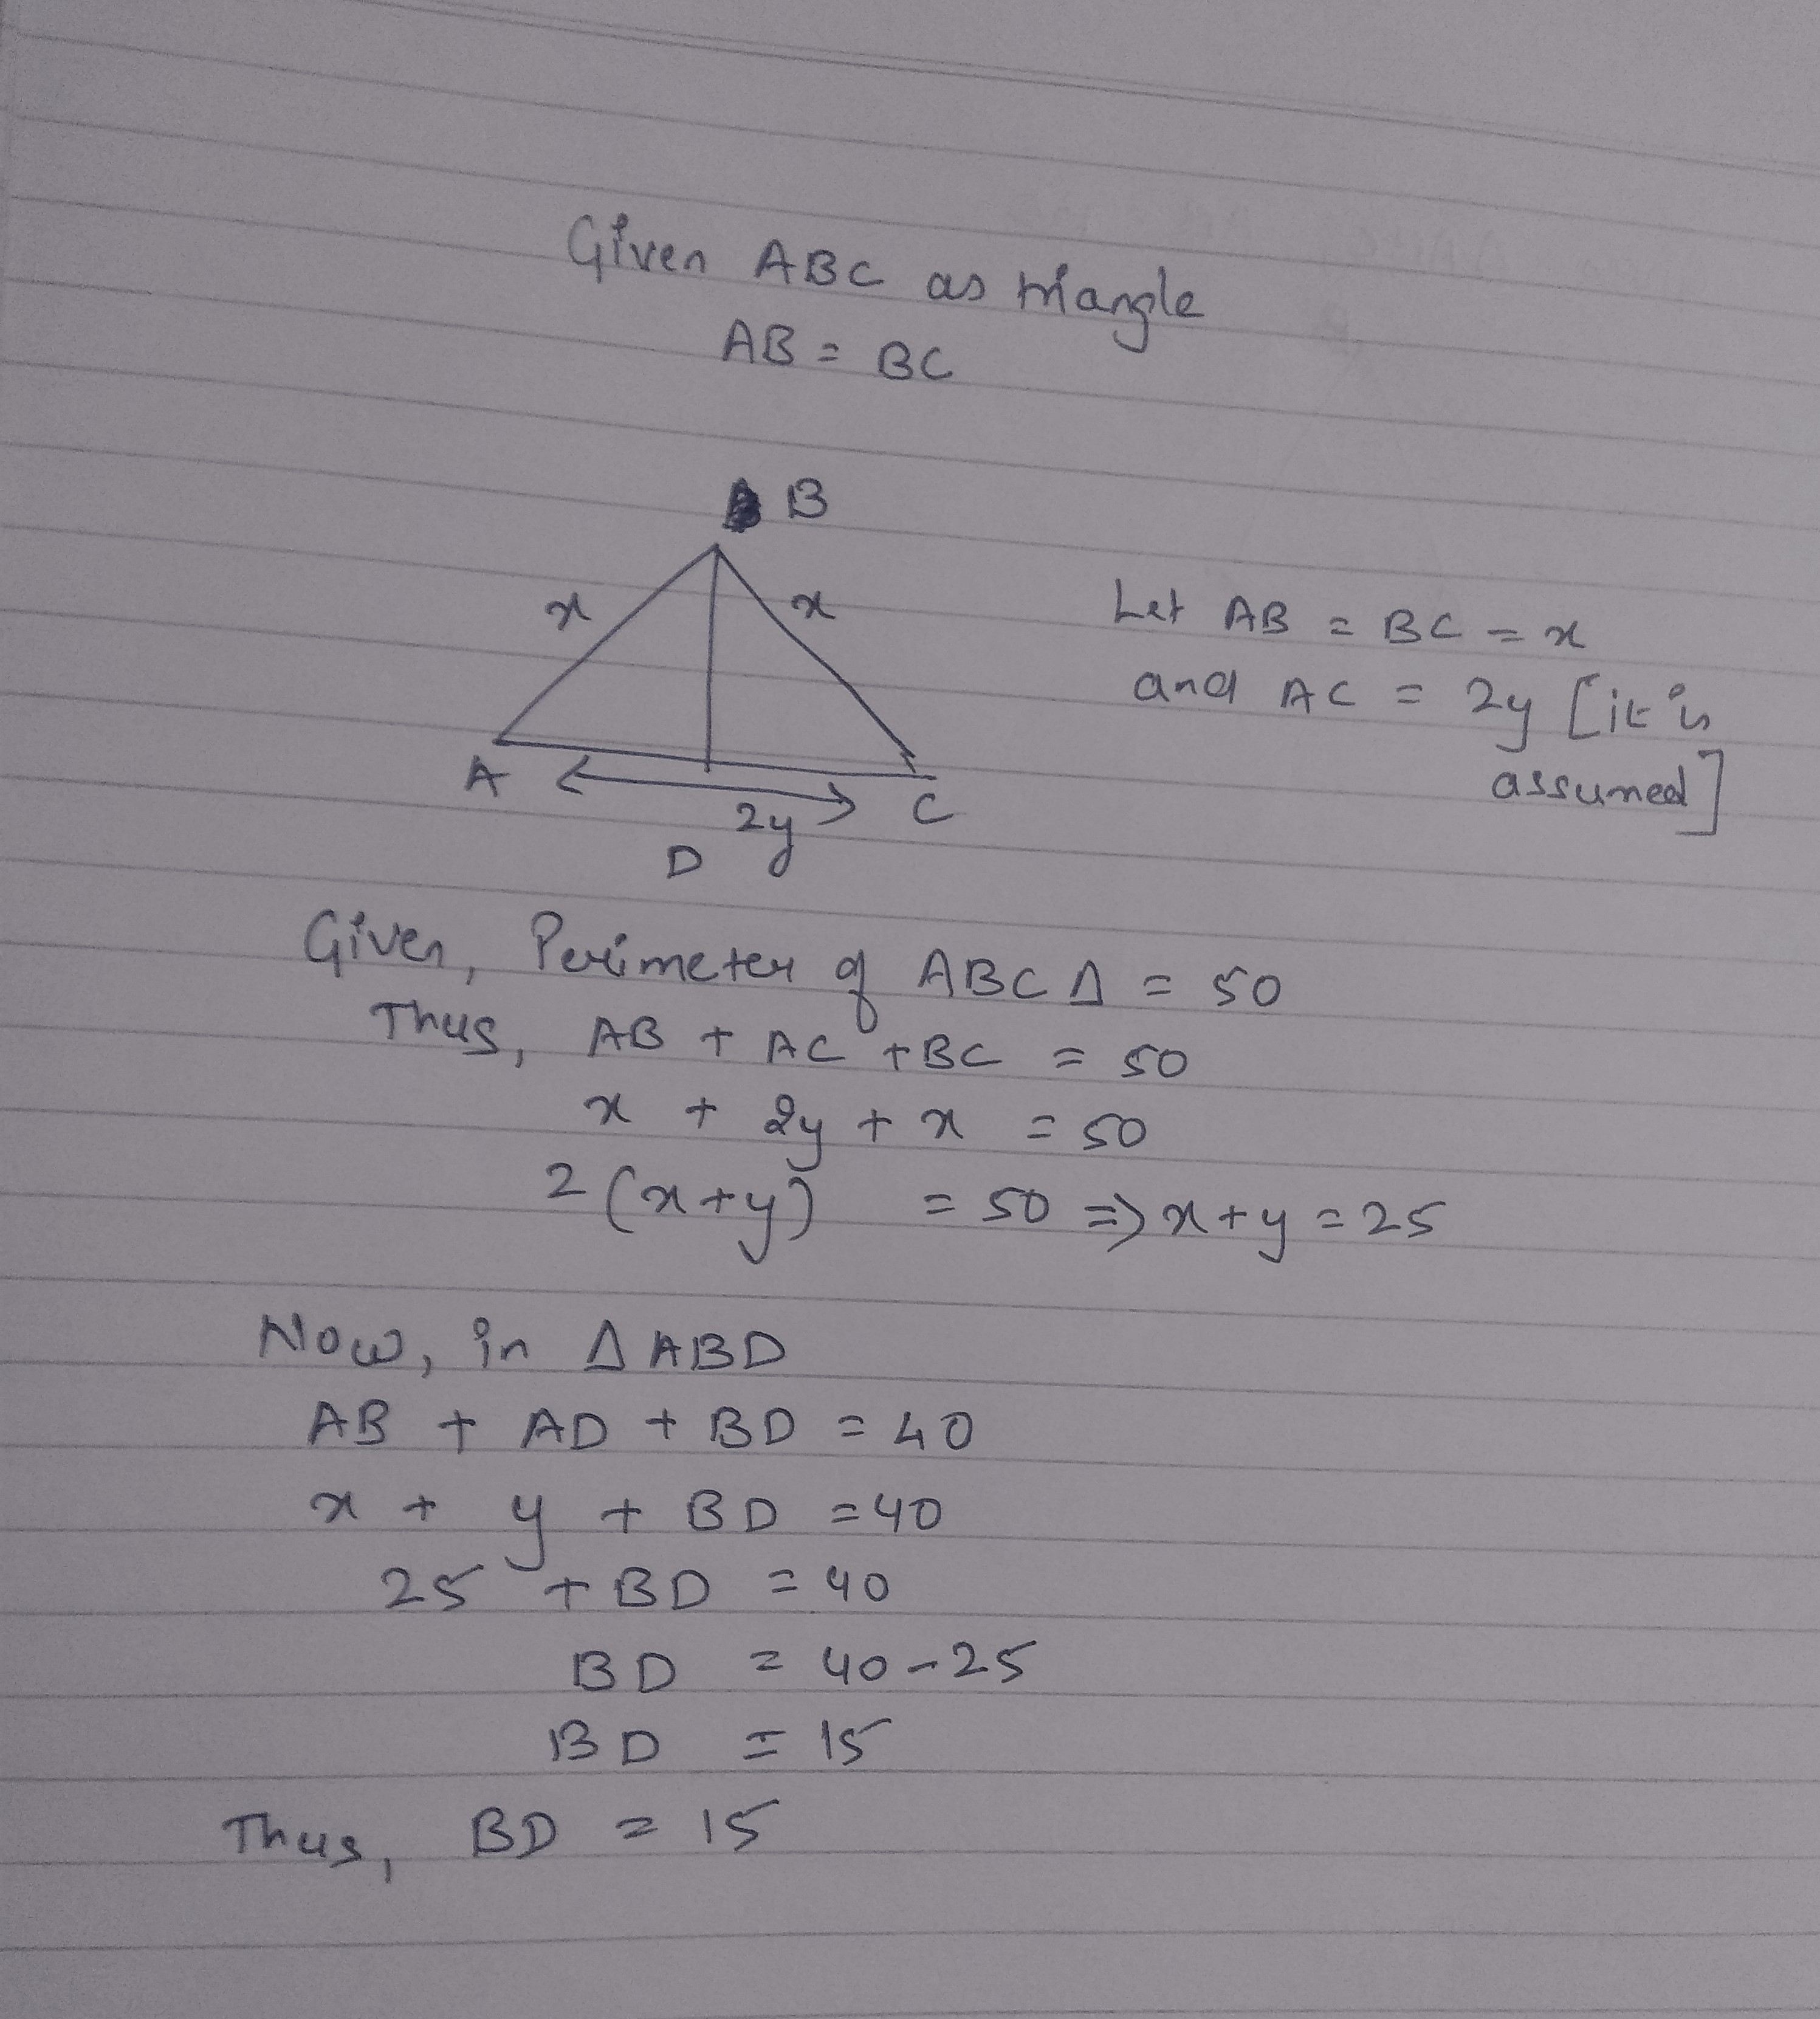 Given ABC as triangle
AB = BC
B
x
x
Let AB = BC = x
and AC = 2y [it is
assumed]
A
C
2y
D
Given, Perimeter of ABC Δ = 50
Thus, AB + AC + BC = 50
x + 2y + x = 50
2(x+y) = 50 => x+y = 25
Now, in Δ ABD
AB + AD + BD = 40
x + y + BD = 40
25 + BD = 40
BD = 40-25
BD = 15
Thus, BD = 15